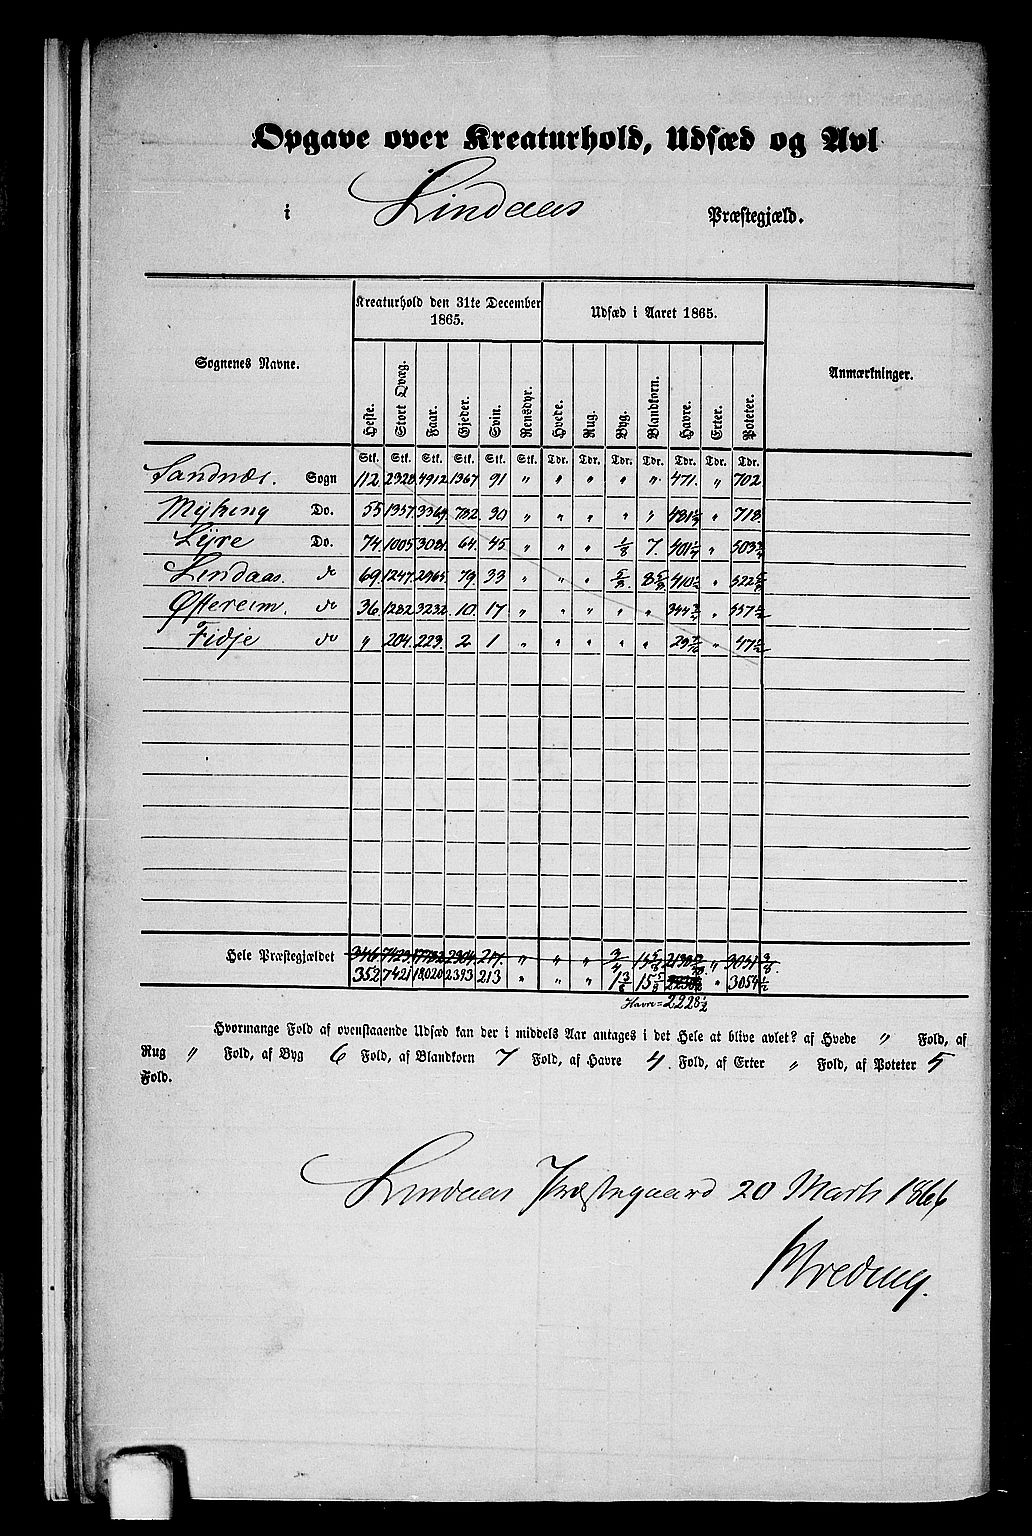 Opgave over Kreaturhold, Udsæd og Avl
i Lindaas Præstegjæld.
Sognenes Navne. Kreaturhold den 31te December 1865. Udsæd i Aaret 1865. Anmærkninger.
Heste. Stort Qvæg. Faar. Gjeder. Svin. Rensdyr. Hvede. Rug. Byg. Blandkorn. Havre. Erter. Poteter.
Stk. Stk. Stk. Stk. Stk. Stk. Tdr. Tdr. Tdr. Tdr. Tdr. Tdr. Tdr.
Sandnæs. Sogn 112 2328 4912 1367 91 " " " " " 471. " 702
Myking Do. 55 1357 3369 782 30 " " " " " " 718
Lyre Do. 74 1005 64. 45 " " " 1/8 7. 401 1/4 " 503
Lindaas. do 69. 1247. 2965. 79 33 " " " 5/8 8 5/8 410 1/2 " 522 5/8
Østreim. do 36 1282 3232 10. 17 " " " " " 344 " 357 1/2
Fidje do " 204. 223. 2 1 " " " " " " 47 1/2
Hele Præstegjældet 346 7423 2304 217. " " " 3/4 15 5/8 " 3031 3/8.
352 7421 18020 2393 213 " " " 1 3/8 15 5/8 " 3054 1/2
Havre = 2228 1/2
Hvormange Fold af ovenstaaende Udsæd kan der i middels Aar antages i det Hele at blive avlet? af Hvede " Fold, af
Rug " Fold, af Byg 6 Fold, af Blandkorn 7 Fold, af Havre 4. Fold, af Erter " Fold, af Poteter 5
Fold.
Lindaas Præstegaard 20 Marts 1866